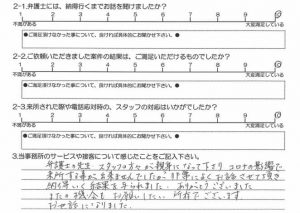 2-1.弁護士には、納得行くまでお話を聞けましたか?
1 2 3 4 5 6 7 8 9 10
不満がある 大変満足している
●ご満足頂けなかった事について、良ければ具体的にお聞かせ下さい。●
2-2.ご依頼いただきました案件の結果は、ご満足いただけるものでしたか?
1 2 3 4 5 6 7 8 9 10
不満がある 大変満足している
●ご満足頂けなかった事について、良ければ具体的にお聞かせ下さい。●
2-3.来所された際や電話応対時の、スタッフの対応はいかがでしたか?
1 2 3 4 5 6 7 8 9 10
不満がある 大変満足している
●ご満足頂けなかった事について、良ければ具体的にお聞かせ下さい。●
3.当事務所のサービスや接客について感じたことをご記入下さい。
弁護士の先生、スタッフの方々が親身になって下さり コロナの影響で
来所する事が出来ませんでしたが 電話等によくお話をさせて頂き
納得いく結果を得られました。ありがとうございました
またの機会も お願いしたい 所存でございます
お世話になりました。